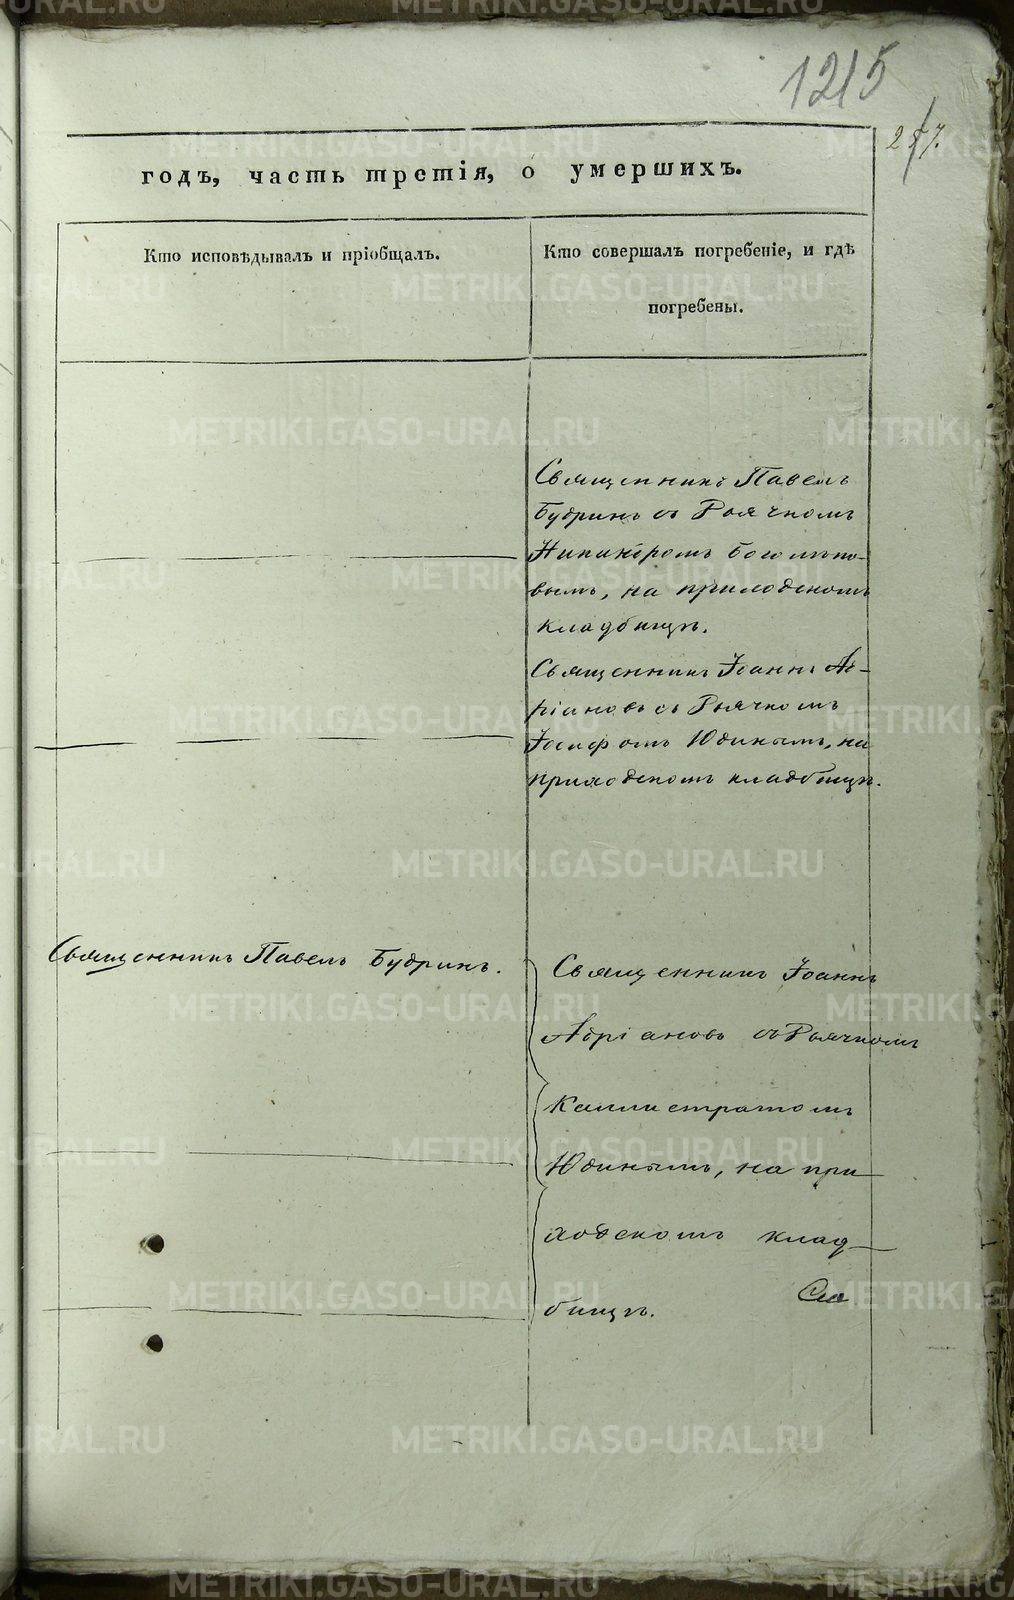 1215
годъ, часть третія, о умершихъ.
Кто исповѣдывалъ и пріобщалъ.
Кто совершалъ погребеніе, и гдѣ
погребены.
Священникъ Павелъ
Будринъ съ Дьячкомъ
Никаноромъ Богомъ
вымъ, на приходскомъ
кладбищѣ.
Священникъ Іоаннъ Ад-
ріановъ съ Дьячкомъ
Іосифомъ Юдинымъ, на
приходскомъ кладбищѣ.
Священникъ Павелъ Будринъ.
Священникъ Іоаннъ
Адріановъ съ Дьячкомъ
Каллистратомъ
Юдинымъ, на при
ходскомъ клад
бищѣ.
METRIKI.GASO-URAL.RU